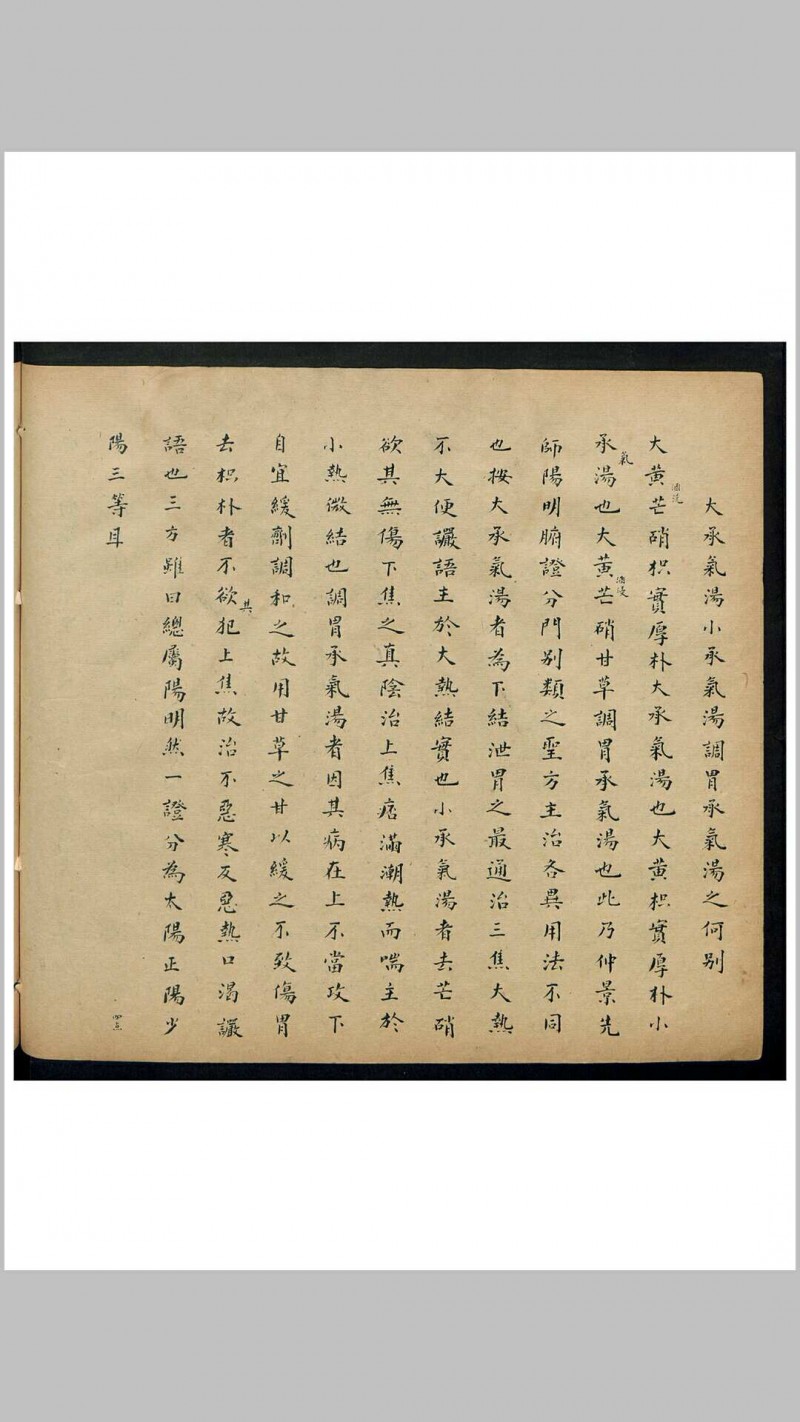 大承氣湯小承氣湯調胃承氣湯之何別
大黃酒洗芒硝枳實厚朴大承氣湯也大黃枳實厚朴小
承氣湯也大黃酒浸芒硝甘草調胃承氣湯也此乃仲景先
師陽明腑證分門別類之聖方主治各異用法不同
也按大承氣湯者為下結泄胃之最通治三焦大熱
不大便讝語主於大熱結實也小承氣湯者去芒硝
欲其無傷下焦之真陰治上焦痞滿潮熱而喘主於
小熱微結也調胃承氣湯者因其病在上不當攻下
自宜緩劑調和之故用甘草之甘以緩之不致傷胃
去枳朴者不欲其犯上焦故治不惡寒反惡熱口渴讝
語也三方雖曰總屬陽明然一證分為太陽正陽少
陽三等耳